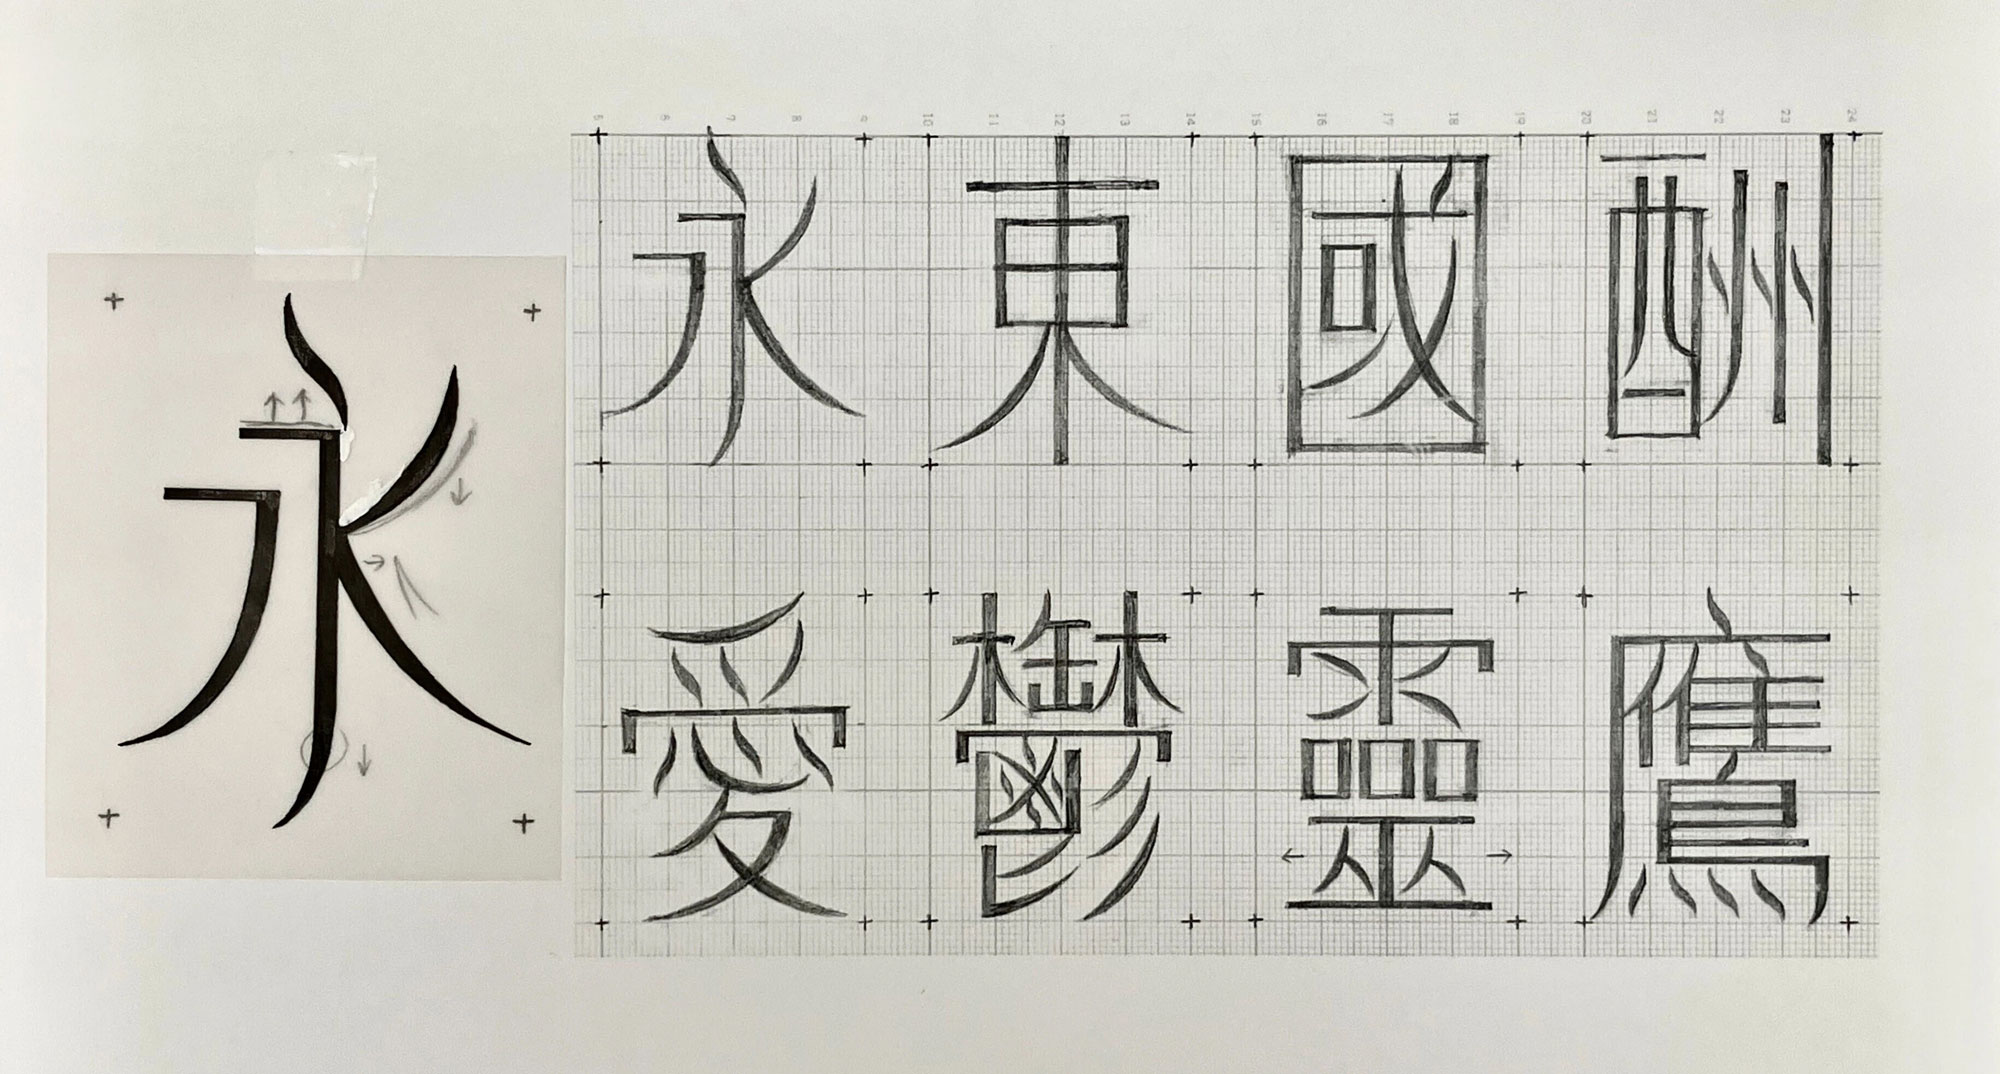 永
5 6 7 8 9 10 11 12 13 14 15 16 17 18 19 20 21 22 23 24
永東國酬
愛鬱靈鷹